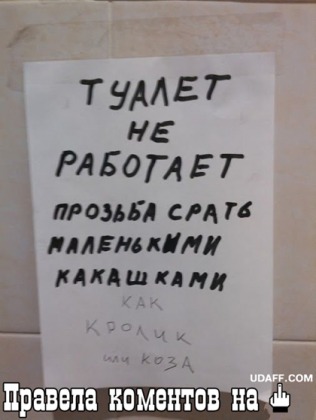 ТУАЛЕТ
НЕ
РАБОТАЕТ
ПРОЗЬБА СРАТЬ
МАЛЕНЬКИМИ
КАКАШКАМИ
КАК
КРОЛИК
или КОЗА
UDAFF.COM
Правела коментов на